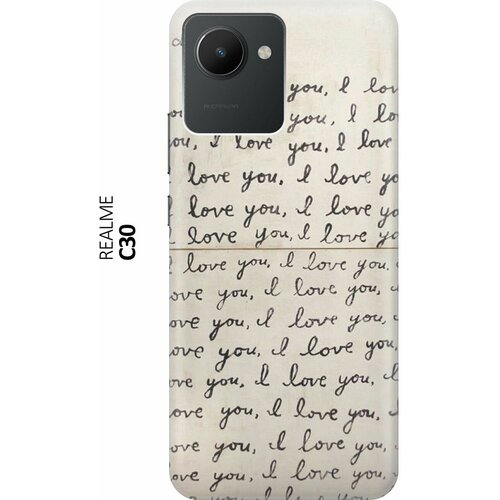 REALME
C30
you, I lov
you, I lo
ou, I love you, I love
love you, I love yo
I love you, I love yo
I love you, I love yo
I love you, I love you,
ove you, I love you,
ove you, I love you,
ove you, I love you,
ove you, I love you, I
love you, I love you,
ove you, I love you,
ove you, I love you,